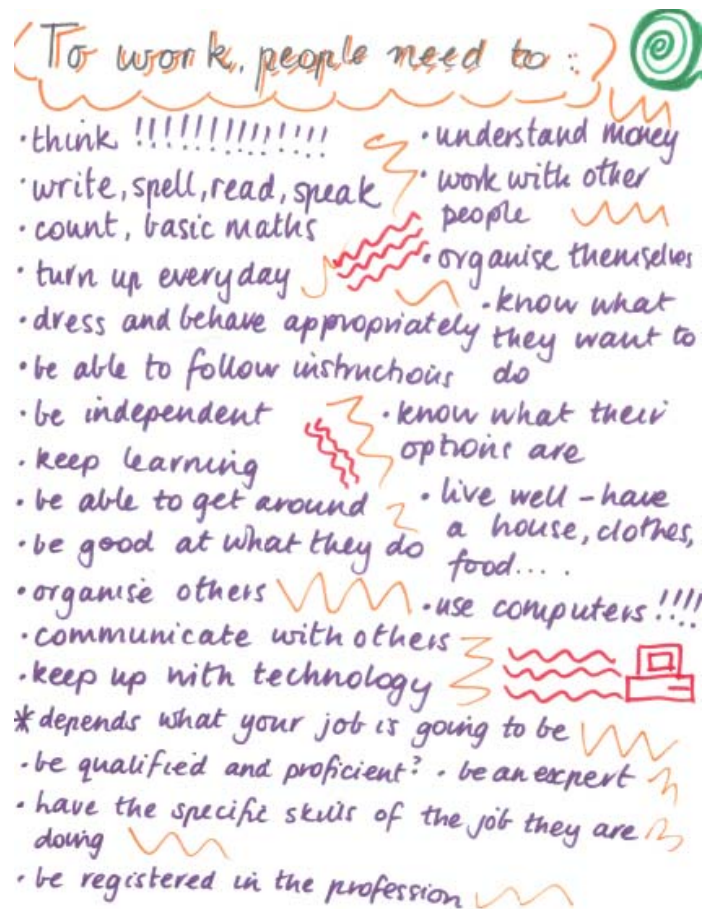 To work, people need to:
· think !!!!!!!!!!!!!!
· write, spell, read, speak
· count, basic maths
· turn up everyday
· dress and behave appropriately
· be able to follow instructions
· be independent
· keep learning
· be able to get around
· be good at what they do
· organise others
· communicate with others
· keep up with technology
· understand money
· work with other
people
· organise themselves
· know what
they want to
do
· know what their
options are
· live well - have
a house, clothes,
food....
· use computers !!!!
* depends what your job is going to be
· be qualified and proficient? · be an expert
· have the specific skills of the job they are
doing
· be registered in the profession